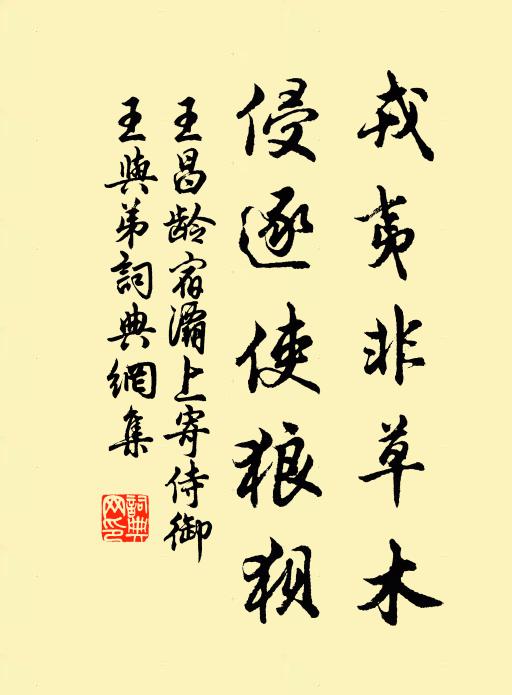 戎夷非草木
侵逐使狼狽
王昌龄宿灞上寄侍御
王與弟詞典網集
詞典
网印